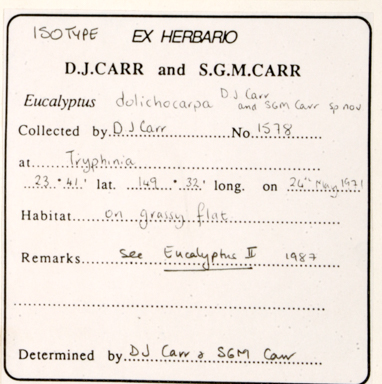 ISOTYPE EX HERBARIO
D.J.CARR and S.G.M.CARR
Eucalyptus dolichocarpa D J Carr and SGM Carr sp nov
Collected by D J Carr No. 1578
at Tryphinia
23 ° 41 ' lat. 149 ° 32 ' long. on 24th May 1971
Habitat on grassy flat
Remarks see Eucalyptus II 1987
Determined by DJ Carr & SGM Carr